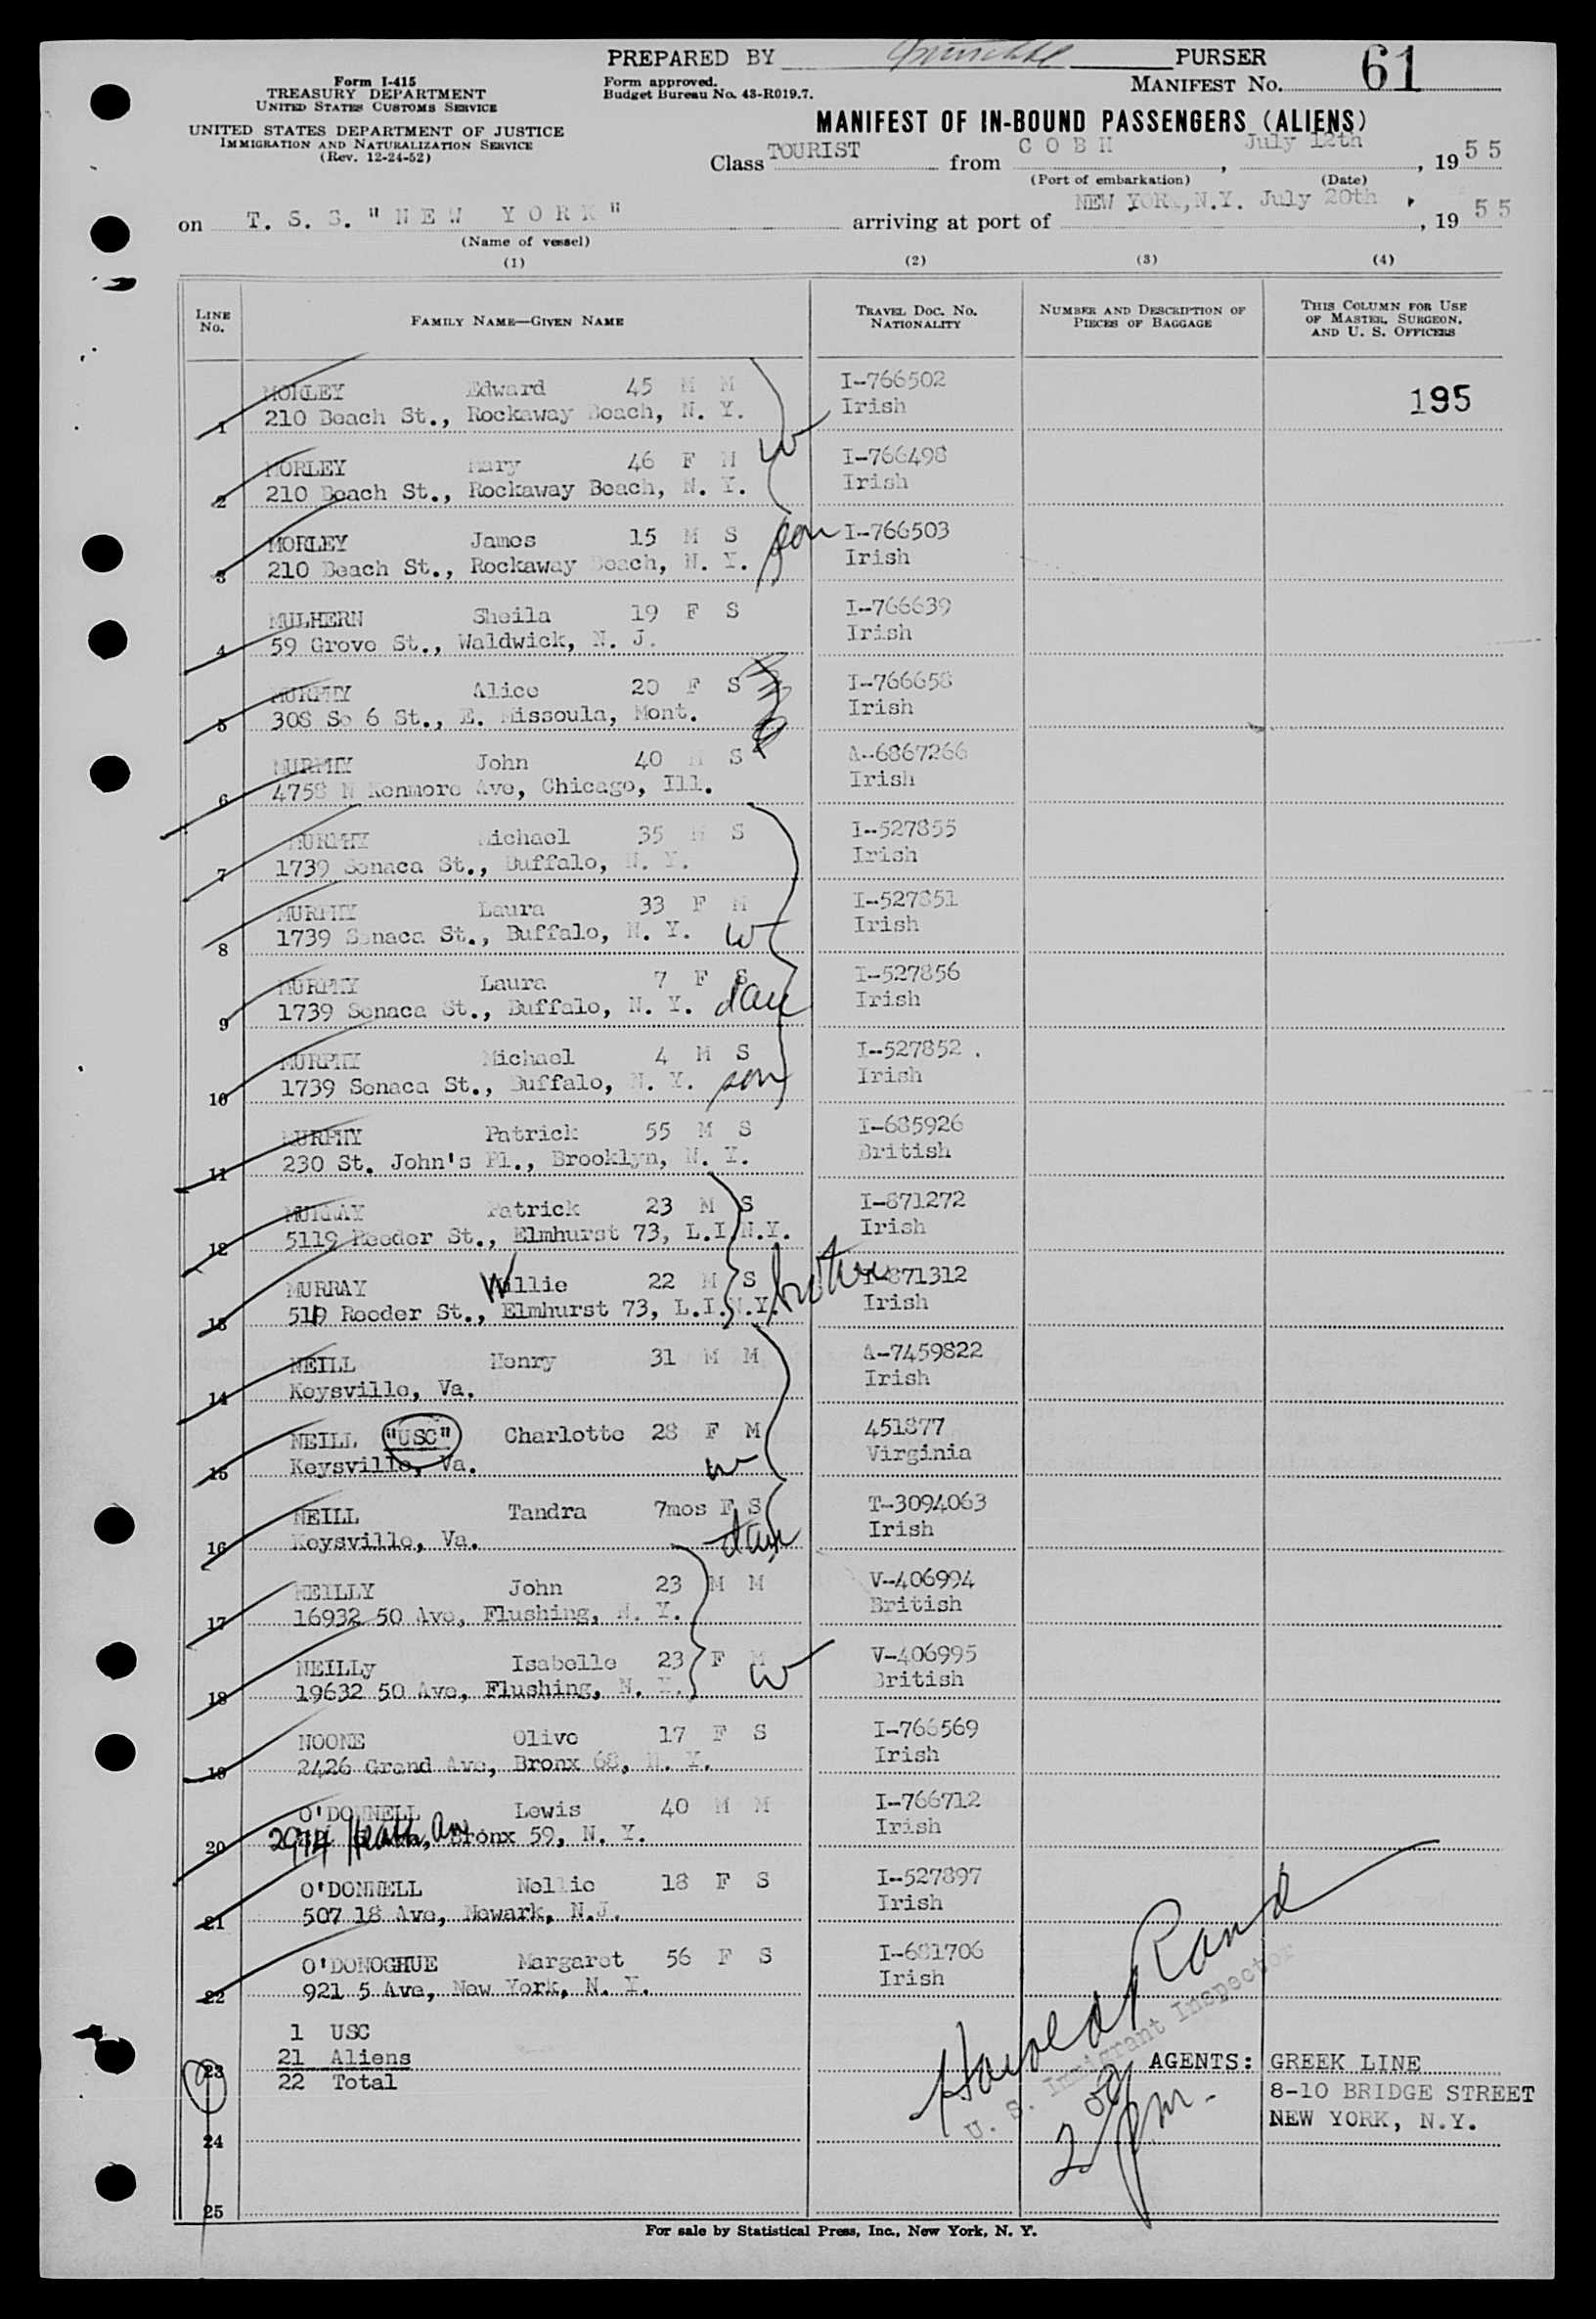 PREPARED BY PURSER 61
Form I-415
TREASURY DEPARTMENT
UNITED STATES CUSTOMS SERVICE
Form approved.
Budget Bureau No. 43-R019.7.
MANIFEST No.
UNITED STATES DEPARTMENT OF JUSTICE
IMMIGRATION AND NATURALIZATION SERVICE
(Rev. 12-24-52)
MANIFEST OF IN-BOUND PASSENGERS (ALIENS)
Class TOURIST from COBH, July 12th, 1955
(Port of embarkation) (Date)
on T. S. S. "NEW YORK" arriving at port of NEW YORK, N.Y. July 20th, 1955
(Name of vessel)
(1) (2) (3) (4)
LINE No. FAMILY NAME—GIVEN NAME TRAVEL DOC. NO. NATIONALITY NUMBER AND DESCRIPTION OF PIECES OF BAGGAGE THIS COLUMN FOR USE OF MASTER, SURGEON, AND U. S. OFFICERS
MORLEY Edward 45 M M I-766502 195
1 210 Beach St., Rockaway Beach, N. Y. Irish
MORLEY Mary 46 F M W I-766498
2 210 Beach St., Rockaway Beach, N. Y. Irish
MORLEY James 15 M S son I-766503
3 210 Beach St., Rockaway Beach, N. Y. Irish
MULHERN Sheila 19 F S I-766639
4 59 Grove St., Waldwick, N. J. Irish
MURPHY Alice 20 F S I-766658
5 308 So 6 St., E. Missoula, Mont. Irish
MURPHY John 40 M S A-6867266
6 4758 N Kenmore Ave, Chicago, Ill. Irish
MURPHY Michael 35 M S I-527855
7 1739 Senaca St., Buffalo, N. Y. Irish
MURPHY Laura 33 F M I-527851
8 1739 Senaca St., Buffalo, N. Y. W Irish
MURPHY Laura 7 F S I-527856
9 1739 Senaca St., Buffalo, N. Y. dau Irish
MURPHY Michael 4 M S I-527852
10 1739 Senaca St., Buffalo, N. Y. son Irish
MURPHY Patrick 55 M S I-685926
11 230 St. John's Pl., Brooklyn, N. Y. British
MURRAY Patrick 23 M S I-871272
12 5119 Reeder St., Elmhurst 73, L.I.N.Y. Irish
MURRAY Willie 22 M S brother I-871312
13 5119 Reeder St., Elmhurst 73, L.I.N.Y. Irish
NEILL Henry 31 M M A-7459822
14 Keysville, Va. Irish
NEILL "USC" Charlotte 28 F M 451877
15 Keysville, Va. W Virginia
NEILL Tandra 7mos F S T-3094063
16 Keysville, Va. dau Irish
NEILLY John 23 M M V-406994
17 16932 50 Ave, Flushing, N. Y. British
NEILLy Isabelle 23 F M V-406995
18 19632 50 Ave, Flushing, N. Y. W British
NOONE Olive 17 F S I-766569
19 2426 Grand Ave, Bronx 68, N. Y. Irish
O'DONNELL Lewis 40 M M I-766712
20 2974 Heath Ave Bronx 59, N. Y. Irish
O'DONNELL Nellie 18 F S I-527897
21 507 18 Ave, Newark, N.J. Irish
O'DONOGHUE Margaret 56 F S I-681706
22 921 5 Ave, New York, N. Y. Irish
1 USC
23 21 Aliens
22 Total
Harold Rand
U. S. Immigrant Inspector
2 50 pm.
AGENTS: GREEK LINE
8-10 BRIDGE STREET
NEW YORK, N.Y.
24
25
For sale by Statistical Press, Inc., New York, N. Y.